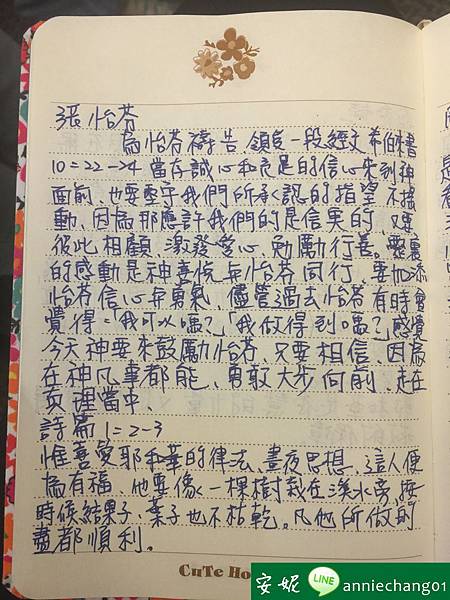 張怡芬
為怡芬禱告領受一段經文希伯來書
10=22-24 當存誠心和充足的信心來到神
面前、也要堅守我們所承認的指望不搖
動、因為那應許我們的是信實的、又要
彼此相顧、激發愛心、勉勵行善。靈裏
的感動是神喜悅與怡芬同行、要加添
怡芬信心與勇氣、儘管過去怡芬有時會
覺得=「我可以嗎?」「我做得到嗎?」感覺
今天神要來鼓勵怡芬、只要相信、因為
在神凡事都能、勇敢大步向前、走在
真理當中、
詩篇1=2-3
惟喜愛耶和華的律法、晝夜思想、這人便
為有福、他要像一棵樹栽在溪水旁、按
時候結果子、葉子也不枯乾。凡他所做的
盡都順利。
CuTe Ho
安妮 LINE anniechang01